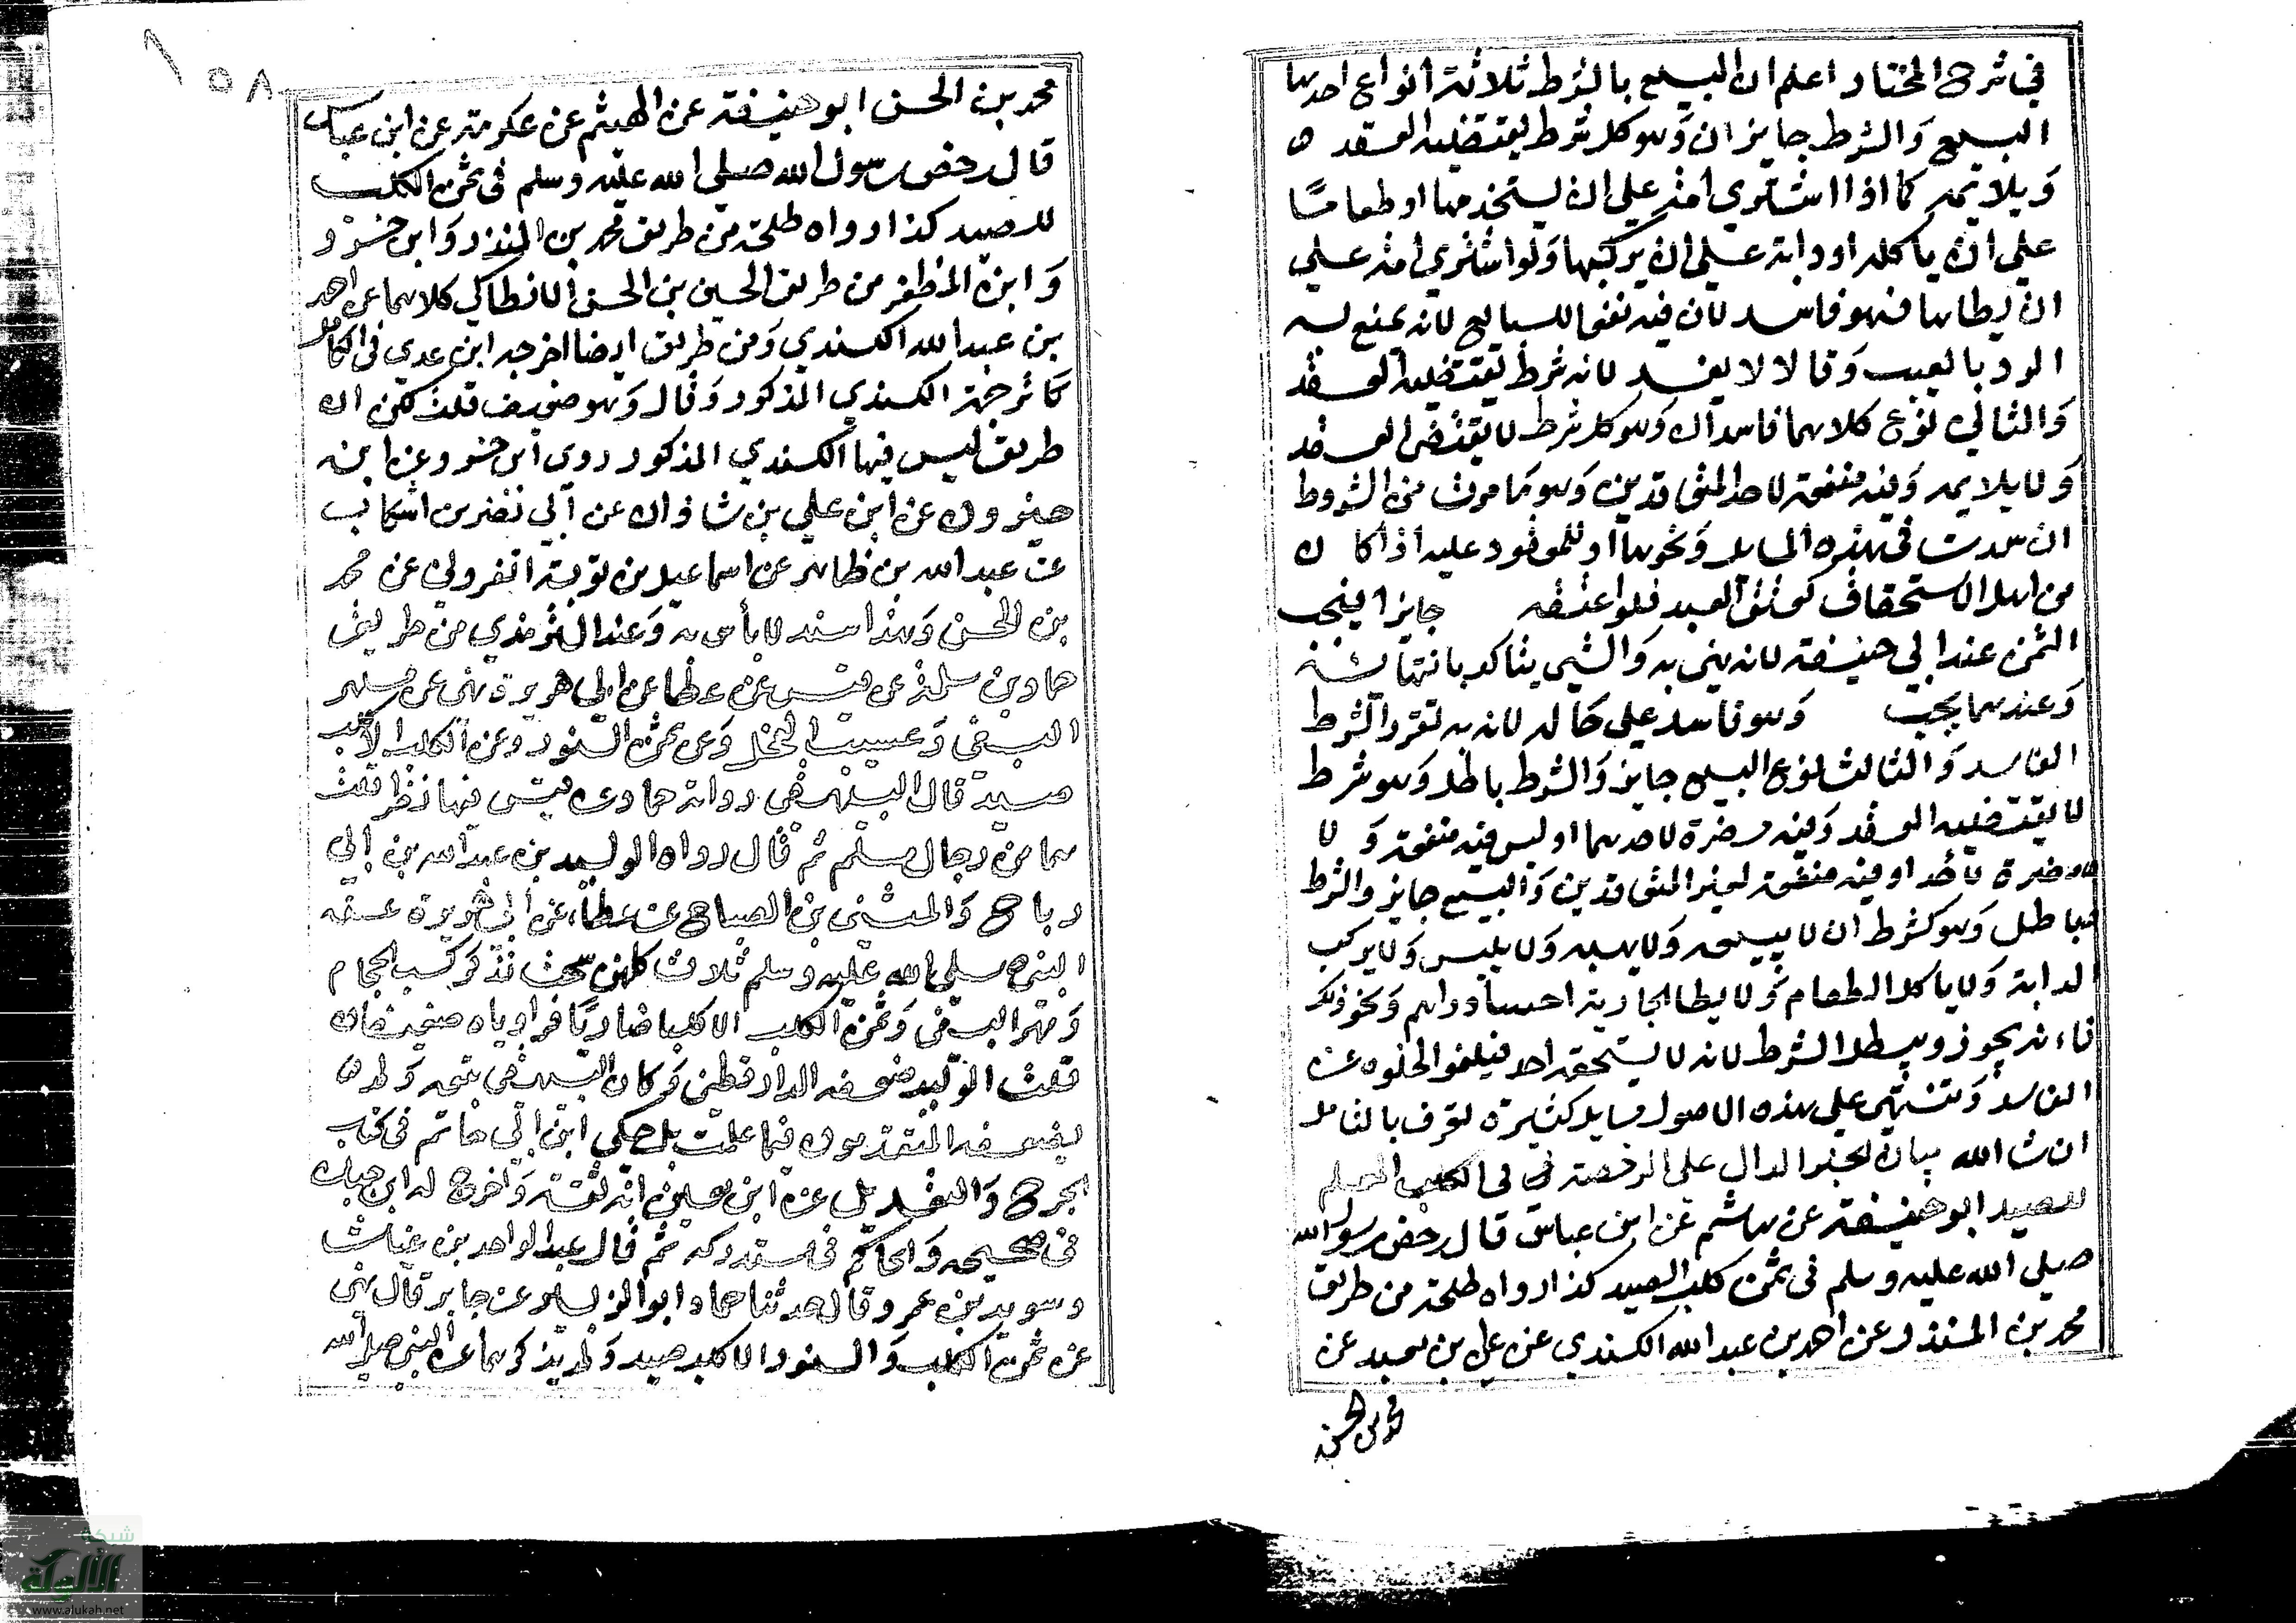 في شرح المختار اعلم ان البيع بالشرط ثلاثة انواع احدها
البيع والشرط جايزان وهو كل شرط يقتضيه العقد
ويلايمه كما اذا اشتري امة علي ان يستخدمها او طعاما
علي ان ياكله او دابة علي ان يركبها ولو اشتري امة علي
ان يطاها فهو فاسد لان فيه نفعا للبايع لانه يمنع به
الرد بالعيب وقالا لا يفسد لانه شرط يقتضيه العقد
والثاني نوع كلاهما فاسدان وهو كل شرط لا يقتضى العقد
ولا يلايمه وفيه منفقة لاحد المتعاقدين وهو ما مرت من الشروط
في هذه المسايل ونحوها او للمعقود عليه اذا كان
من اهل الاستحقاق كعتق العبد فلو اعتقه جايزا فيجب
الثمن عند ابي حنيفة لانه ينهى به والشي يتاكد بانتهائه
وعندهما يجب وهو فاسد علي حاله لانه به تقرر الشرط
الفاسد والثالث نوع البيع جايز والشرط باطل وهو شرط
لا يقتضيه العقد وفيه مضرة لاحدهما او ليس فيه منفقة ولا
مضرة لاحد او فيه منفقة لغير المتعاقدين والبيع جايز والشرط
باطل وهو كشرط ان لا يبيعه ولا يهبه ولا يلبس ولا يركب
الدابة ولا ياكل الطعام ولا يطا الجارية دراهم ونحو ذلك
فانه يجوز ويبطل الشرط لانه لا يستحقه احد فيلغو
الفاسد وتنتهي علي هذه الاصول مسايل كثيرة تعرف بالتامل
ان شا الله بيان الخبر الدال علي الرخصة في الكلب المعلم
للصيد ابو حنيفة عن هاشم عن ابن عباس قال رخص رسول الله
صلي الله عليه وسلم في ثمن كلب الصيد كذا رواه طلحة من طريق
محمد بن المنذر عن احمد بن عبد الله الكندي عن علي بن معبد عن
محمد بن الحسن
١٥٨
محمد بن الحسن ابو حنيفة عن الهيثم عن عكرمة عن ابن عباس
قال رخص رسول الله صلي الله عليه وسلم في ثمن الكلب
للصيد كذا رواه طلحة من طريق محمد بن المنذر وابن خسرو
وابن المظفر من طريق الحسين بن الحسن الانطاكي كلاهما عن احمد
بن عبد الله الكندي ومن طريق ايضا اخرجه ابن عدي في الكامل
كا ترجمة الكندي المذكور وقال وهو ضعيف قلت لكن ان
طريق ليس فيها الكندي المذكور روى ابن خسرو عن ابن
خيرون عن ابن علي بن شاذان عن ابي نضر بن اشكاب
عن عبد الله بن طاهر عن اسماعيل بن توبة القزويني عن محمد
بن الحسن وهذا سند لا بأس به وعند الترمذي من طريق
حماد بن سلمة عن قيس عن عطا عن ابي هريرة نهى عن مهر
البغي وعسيب الفحل وعن ثمن السنور وعن الكلب الا كلب
صيد قال البيهقي رواية حماد عن قيس فيها نظر قلت
هما من رجال مسلم ثم قال رواه الوليد بن عبد الله بن ابي
رباح والمثنى بن الصباح عن عطاء عن ابي هريرة عنه
النبي صلي الله عليه وسلم ثلاث كلهن سحت فذكر كسب الحجام
ومهر البغي وثمن الكلب الا كلبا ضاريا فراوياه ضعيفان
قلت الوليد ضعفه الدارقطني وكان البيهقي تبعه ولم
يضعفه المتقدمون فيما علمت بل حكي ابن ابي حاتم في كتاب
الجرح والتعديل عن ابن معين انه ثقة واخرج له ابن حبان
في صحيحه والحاكم في مستدركه ثم قال عبد الواحد بن غياث
وسويد بن عمرو قال حدثنا حماد ابو الزبير عن جابر قال نهى
عن ثمن الكلب والسنور الا كلب صيد ولم يذكر حماد عن النبي صلي الله
شبكة
الألوكة
www.alukah.net